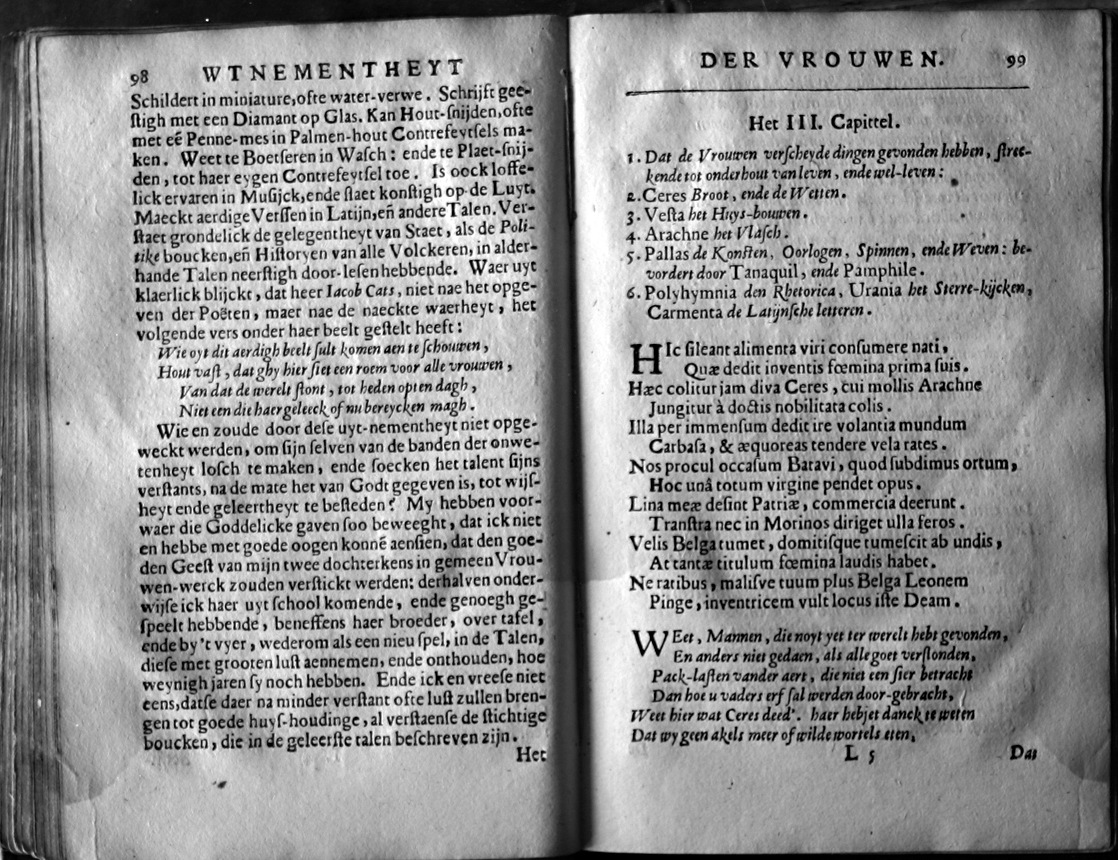 98 WTNEMENTHEYT
Schildert in miniature, ofte water-verwe. Schrijft gee-
ſtigh met een Diamant op Glas. Kan Hout-ſnijden, ofte
met eẽ Penne-mes in Palmen-hout Contrefeytſels ma-
ken. Weet te Boetſeren in Waſch: ende te Plaet-ſnij-
den, tot haer eygen Contrefeytſel toe. Is oock loffe-
lick ervaren in Muſijck, ende ſlaet konſtigh op de Luyt.
Maeckt aerdige Verſſen in Latijn, eñ andere Talen. Ver-
ſtaet grondelick de gelegentheyt van Staet, als de Poli-
tike boucken, eñ Hiſtoryen van alle Volckeren, in alder-
hande Talen neerſtigh door-leſen hebbende. Waer uyt
klaerlick blijckt, dat heer Iacob Cats, niet nae het opge-
ven der Poëten, maer nae de naeckte waerheyt, het
volgende vers onder haer beelt geſtelt heeft:
Wie oyt dit aerdigh beelt ſult komen aen te ſchouwen,
Hout vaſt, dat ghy hier ſiet een roem voor alle vrouwen,
Van dat de werelt ſtont, tot heden opten dagh,
Niet een die haer geleeck of nu bereycken magh.
Wie en zoude door deſe uyt-nementheyt niet opge-
weckt werden, om ſijn ſelven van de banden der onwe-
tenheyt loſch te maken, ende ſoecken het talent ſijns
verſtants, na de mate het van Godt gegeven is, tot wijſ-
heyt ende geleertheyt te beſteden? My hebben voor-
waer die Goddelicke gaven ſoo beweeght, dat ick niet
en hebbe met goede oogen konnẽ aenſien, dat den goe-
den Geeſt van mijn twee dochterkens in gemeen Vrou-
wen-werck zouden verſtickt werden: derhalven onder-
wijſe ick haer uyt ſchool komende, ende genoegh ge-
ſpeelt hebbende, beneffens haer broeder, over tafel,
ende by 't vyer, wederom als een nieu ſpel, in de Talen,
dieſe met grooten luſt aennemen, ende onthouden, hoe
weynigh jaren ſy noch hebben. Ende ick en vreeſe niet
eens, datſe daer na minder verſtant ofte luſt zullen bren-
gen tot goede huyſ-houdinge, al verſtaenſe de ſtichtige
boucken, die in de geleerſte talen beſchreven zijn.
Het
DER VROUWEN. 99
Het III. Capittel.
1. Dat de Vrouwen verſcheyde dingen gevonden hebben, ſtrec-
kende tot onderhout van leven, ende wel-leven:
2. Ceres Broot, ende de Wetten.
3. Veſta het Huys-bouwen.
4. Arachne het Vlaſch.
5. Pallas de Konſten, Oorlogen, Spinnen, ende Weven: be-
vordert door Tanaquil, ende Pamphile.
6. Polyhymnia den Rhetorica, Urania het Sterre-kijcken,
Carmenta de Latijnſche letteren.
HIc ſileant alimenta viri conſumere nati,
Quæ dedit inventis fœmina prima ſuis.
Hæc colitur jam diva Ceres, cui mollis Arachne
Jungitur à doctis nobilitata colis.
Illa per immenſum dedit ire volantia mundum
Carbaſa, & æquoreas tendere vela rates.
Nos procul occaſum Batavi, quod ſubdimus ortum,
Hoc unâ totum virgine pendet opus.
Lina meæ deſint Patriæ, commercia deerunt.
Tranſtra nec in Morinos diriget ulla feros.
Velis Belga tumet, domitiſque tumeſcit ab undis,
At tantæ titulum fœmina laudis habet.
Ne ratibus, maliſve tuum plus Belga Leonem
Pinge, inventricem vult locus iſte Deam.
WEet, Mannen, die noyt yet ter werelt hebt gevonden,
En anders niet gedaen, als alle goet verſlonden,
Pack-laſten vander aert, die niet een ſier betracht
Dan hoe u vaders erf ſal werden door-gebracht,
Weet hier wat Ceres deed'. haer hebjet danck te weten
Dat wy geen akels meer of wilde wortels eten,
L 5 Dat